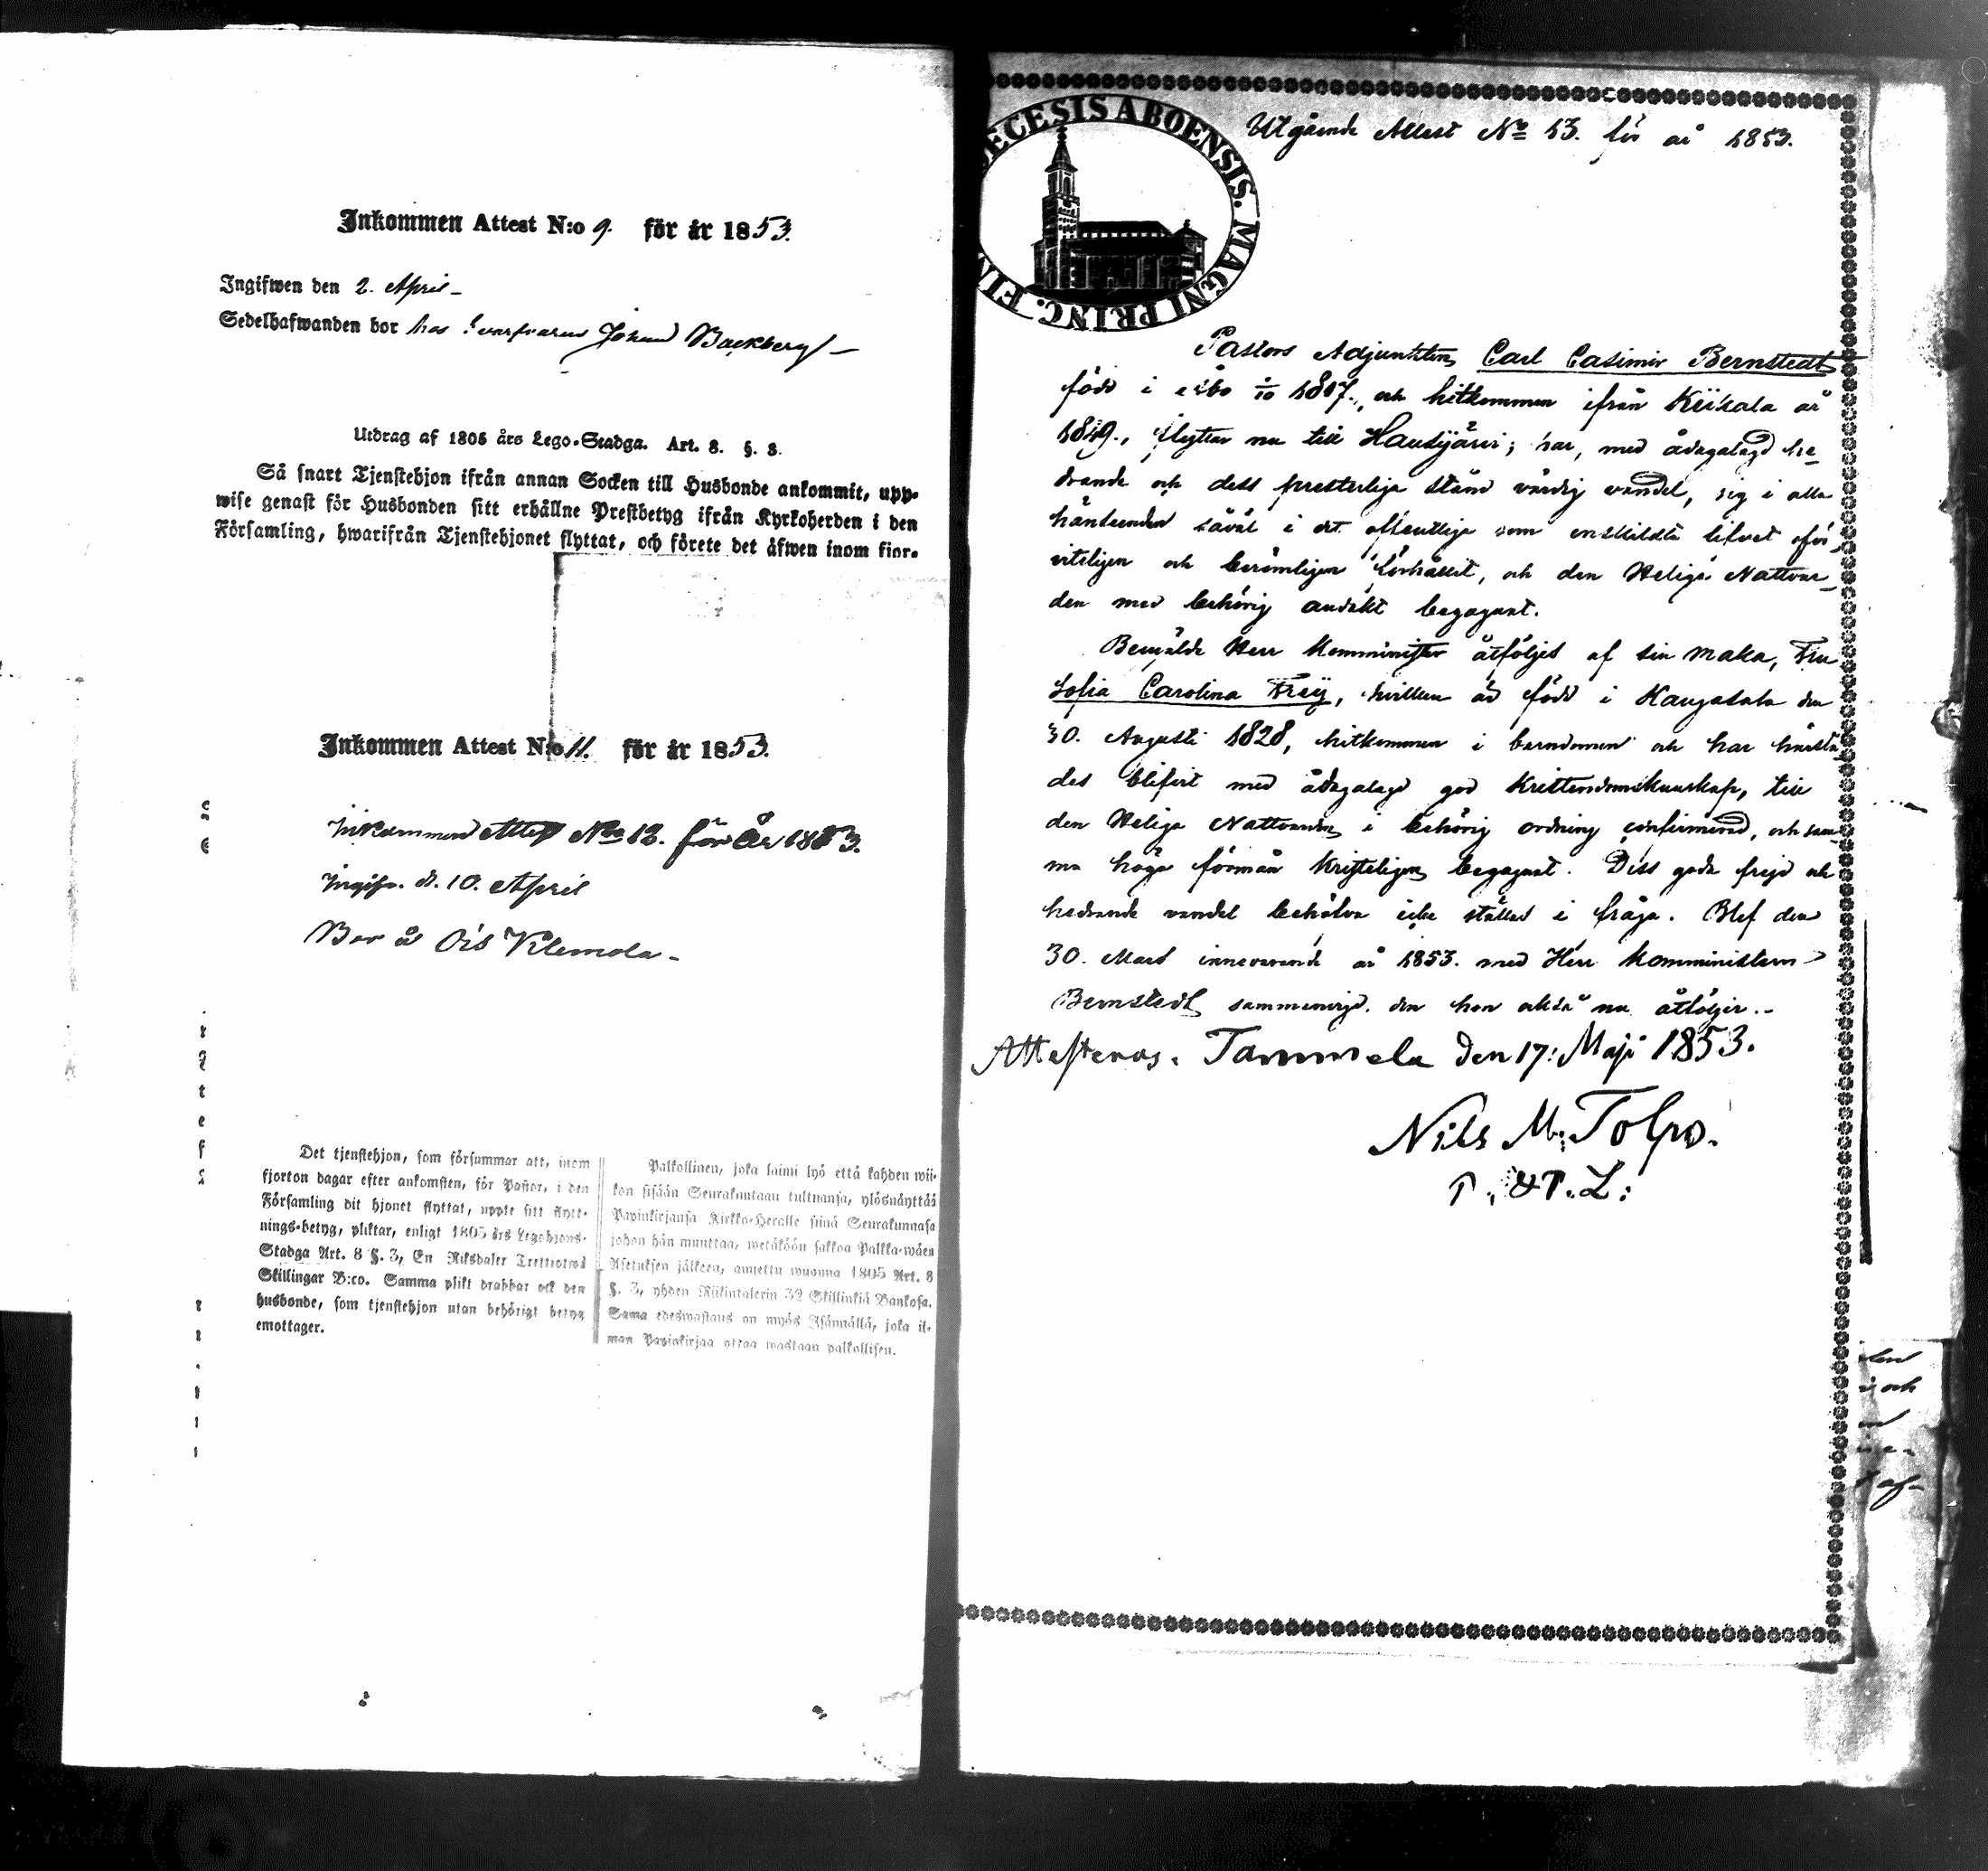 Inkommen Attest N:o 9. för år 1853.
Ingifwen den 2. April
Sedelhafwanden bor hos Johan Backberg
Utdrag af 1805 års Lego-Stadga. Art. 8. §. 3.
Så snart Tjenstehjon ifrån annan Socken till Husbonde ankommit, upp-
wise genast för Husbonden sitt erhållne Prestbetyg ifrån Kyrkoherden i den
Församling, hwarifrån Tjenstehjonet flyttat, och förete det äfwen inom fior-
Inkommen Attest N:o 11. för år 1853.
Inkommen Attest No 12. för År 1853.
Ingifv. d. 10. April
Bor å Ois Klemola
Det tjenstehjon, som försummar att, inom
fjorton dagar efter ankomsten, för Pastor, i den
Församling dit hjonet flyttat, uppte sitt flytt-
nings-betyg, pliktar, enligt 1805 års Legohjons-
Stadga Art. 8 §. 3, En Riksdaler Trettiotwå
Skillingar B:co. Samma plikt drabbar ock den
husbonde, som tjenstehjon utan behörigt betyg
emottager.
Palkollinen, joka laimi lyö että kahden wii-
kon sisään Seurakuntaan tultuansa, ylösnäyttää
Papinkirjansa Kirkko-Heralle siinä Seurakunnasa
johon hän muuttaa, wetäköön sakkoa Palkka-wäen
Asetuksen jälkeen, annettu wuonna 1805 Art. 8
§. 3, yhden Riikintalerin 32 Skillinkiä Bankosa.
Sama edeswastaus on myös Isännällä, joka il-
man Papinkirjaa ottaa wastaan palkollisen.
ECESIS ABOENSIS. MAGNI PRINC. FIN
Utgående Attest No 13. för år 1853.
Pastors Adjunkten Carl Casimir Bernstedt
född i Åbo 1817., och hitkommen ifrån Kiikala år
1849., flyttar nu till Hausjärvi; har, med ådagalagd he-
drande och dess presterliga stånd värdig vandel, sig i alla
hänseenden såväl i det offentliga som enskildta lifvet oför-
viteligen och berömligen förhållit, och den Heliga Nattvar-
den med behörig andakt begagnat.
Bemälde Herr Komminister åtföljes af sin maka, Fru
Sofia Carolina Frey, hvilken är född i Kangasala den
30. Augusti 1828, hitkommen i barndomen och har härstä-
des blifvit med ådagalagd god Kristendomskunskap, till
den Heliga Nattvarden i behörig ordning confirmerad, och sam-
ma höga förmån kristeligen begagnat. Dess goda frejd och
hedrande vandel behöfva icke ställas i fråga. Blef den
30. Mars innevarande år 1853. med Herr Komministern
Bernstedt sammanvigd, den hon altså nu åtföljer.
Attesteras, Tammela den 17: Maji 1853.
Nils M. Tolpo.
P. & P. L: